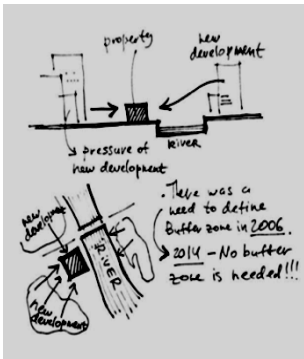 property
new
development
RiVER
pressure of
new development
new
development
RiVER
new
development
. There was a
need to define
Buffer zone in 2006.
2014 - No buffer
zone is needed!!!